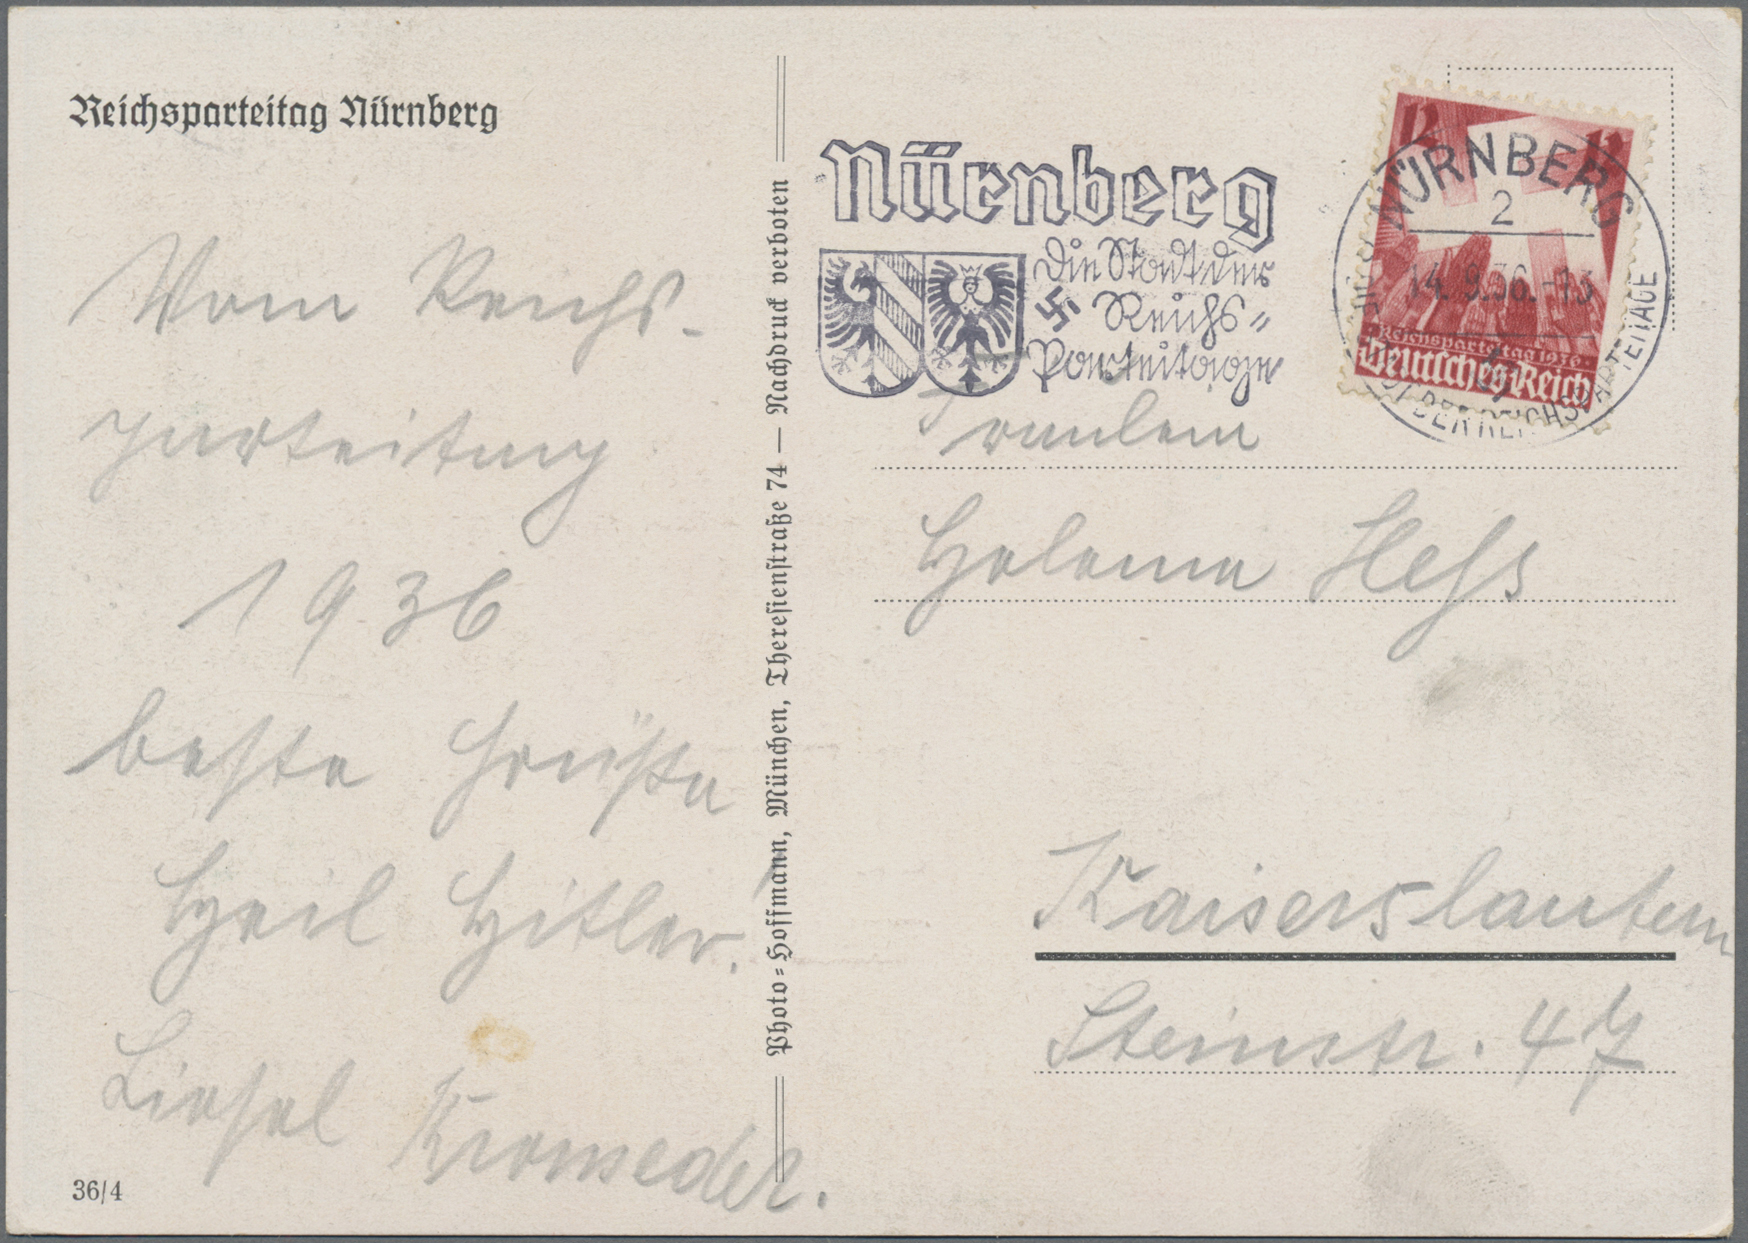 Reichsparteitag Nürnberg
Vom Reichs-
parteitag
1936
beste Grüße
Heil Hitler!
Liesel Kromeder.
36/4
Photo-Hoffmann, München, Theresienstraße 74 — Nachdruck verboten
Nürnberg
Die Stadt der
Reichs-
Parteitage
12 12
Reichsparteitag 1936
Deutsches Reich
NÜRNBERG
2
14.9.36.-13
DER REICHSPARTEITAGE
Fräulein
Helene Heß
Kaiserslautern
Steinstr. 47